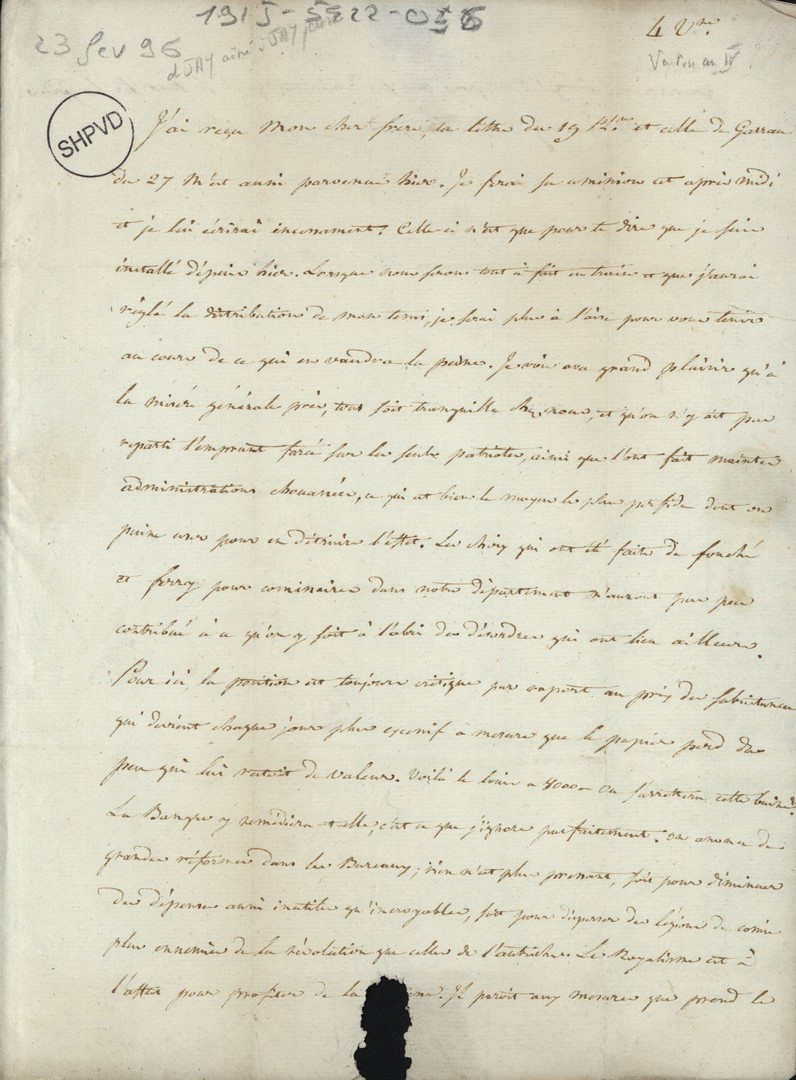 1915-5522-056
23 fev 96
d JAY ainé à JAY jeune
4 Vse
Ventose an IV
SHPVD
J'ai reçu mon cher frere, ta lettre du 19 et celle de Garrau
du 27 m'est aussi parvenue hier. Je ferai sa comission cet après midi
et je lui écrirai incessament. Celle ci n'est que pour te dire que je suis
installé depuis hier. Lorsque nous serons tout à fait en train et que j'aurai
réglé la distribution de mon tems, je serai plus à l'aise pour vous tenir
au cours de ce qui en vaudra la peine. Je vois avec grand plaisir qu'à
la misere générale près, tout soit tranquille chez nous, et qu'on n'y ait pas
reparti l'emprunt forcé sur les seuls patriotes, ainsi que l'ont fait maintes
administrations chouanées, ce qui est bien le moyen le plus perfide dont on
puisse user pour en détruire l'effet. Les choix qui ont été faits de fouché
et ferroy pour comissaires dans notre département n'auront pas peu
contribué à ce qu'on y soit à l'abri des désordres qui ont lieu ailleurs.
Pour ici, la position est toujours critique par raport au prix des subsistances
qui devient chaque jour plus excessif à mesure que le papier perd du
peu qui lui restoit de valeur. Voilà le louis à 8000. Où s'arrettera cette baisse?
La Banque y remédiera-t-elle, c'est ce que j'ignore parfaitement. On anonce de
grandes réformes dans les Bureaux; rien n'est plus pressant, soit pour diminuer
des dépenses aussi inutiles qu'incroyables, soit pour disperser des légions de comis
plus ennemis de la révolution que celles de l'autriche. Le Royalisme est à
l'affut pour profiter de la . Il paroit aux mesures que prend le